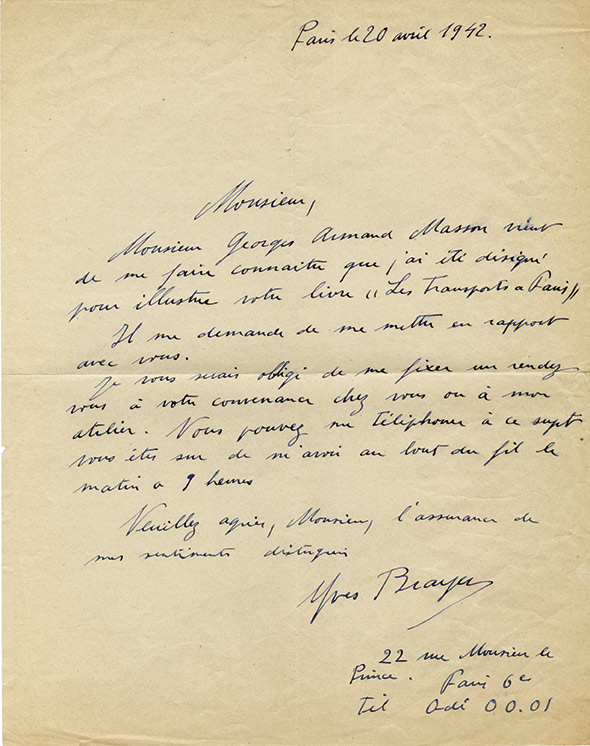 Paris le 20 avril 1942.
Monsieur,
Monsieur Georges Armand Masson vient
de me faire connaitre que j'ai été désigné
pour illustrer votre livre "Les Transports à Paris"
Il me demande de me mettre en rapport
avec vous.
Je vous serais obligé de me fixer un rendez
vous à votre convenance chez vous ou à mon
atelier. Vous pouvez me téléphoner à ce sujet
vous êtes sur de m'avoir au bout du fil le
matin à 9 heures
Veuillez agréer, Monsieur, l'assurance de
mes sentiments distingués
Yves Brayer
22 rue Monsieur le
Prince. Paris 6e
Tél Odé 00.01